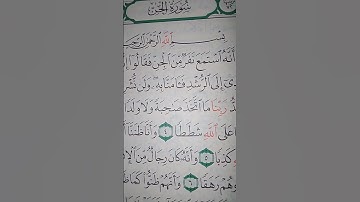 سُورَةُ الجِنِّ
بِسْمِ اللَّهِ الرَّحْمَٰنِ الرَّحِيمِ
أَنَّهُ اسْتَمَعَ نَفَرٌ مِّنَ الْجِنِّ فَقَالُوا إِ
دِي إِلَى الرُّشْدِ فَآمَنَّا بِهِ ۖ وَلَن نُّشْرِ
رَبِّنَا مَا اتَّخَذَ صَاحِبَةً وَلَا وَلَدًا
عَلَى اللَّهِ شَطَطًا ٤ وَأَنَّا ظَنَنَّا
كَذِبًا ٥ وَأَنَّهُ كَانَ رِجَالٌ مِّنَ الْإِ
وهُمْ رَهَقًا ٦ وَأَنَّهُمْ ظَنُّوا كَمَا ظَ